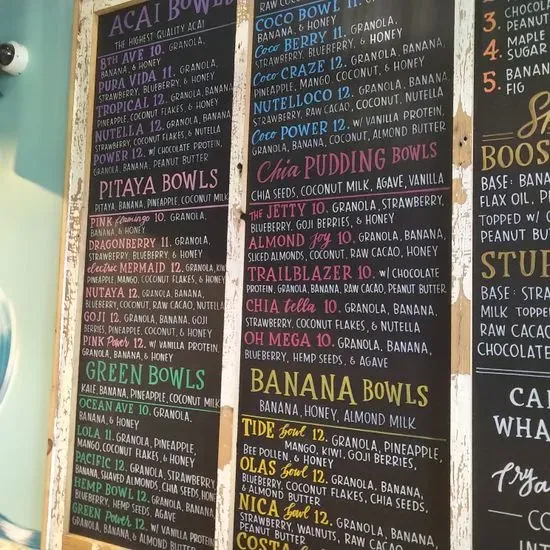 ACAI BOWLS
THE HIGHEST QUALITY ACAI
8TH AVE 10. GRANOLA,
BANANA, & HONEY
PURA VIDA 11. GRANOLA,
STRAWBERRY, BLUEBERRY, & HONEY
TROPICAL 12. GRANOLA, BANANA,
PINEAPPLE, COCONUT FLAKES, & HONEY
NUTELLA 12. GRANOLA, BANANA,
STRAWBERRY, COCONUT FLAKES, & NUTELLA
POWER 12. W/ CHOCOLATE PROTEIN,
GRANOLA, BANANA, PEANUT BUTTER
PITAYA BOWLS
PITAYA, BANANA, PINEAPPLE, COCONUT MILK
PINK flamingo 10. GRANOLA,
BANANA, & HONEY
DRAGONBERRY 11. GRANOLA,
STRAWBERRY, BLUEBERRY, & HONEY
electric MERMAID 12. GRANOLA, KIWI,
PINEAPPLE, MANGO, COCONUT FLAKES, & HONEY
NUTAYA 12. GRANOLA, BANANA,
BLUEBERRY, COCONUT, RAW CACAO, NUTELLA
GOJI 12. GRANOLA, BANANA, GOJI
BERRIES, PINEAPPLE, COCONUT, & HONEY
PINK Power 12. W/ VANILLA PROTEIN,
GRANOLA, BANANA, & HONEY
GREEN BOWLS
KALE, BANANA, PINEAPPLE, COCONUT MILK
OCEAN AVE 10. GRANOLA,
BANANA, & HONEY
LOLA 11. GRANOLA, PINEAPPLE,
MANGO, COCONUT FLAKES, & HONEY
PACIFIC 12. GRANOLA, STRAWBERRY,
BANANA, SHAVED ALMONDS, CHIA SEEDS, HONEY
HEMP BOWL 12. GRANOLA, BANANA,
BLUEBERRY, HEMP SEEDS, AGAVE
GREEN Power 12. W/ VANILLA PROTEIN,
GRANOLA, BANANA, & ALMOND BUTTER
COCO BOWL 11. GRANOLA,
BANANA, & HONEY
Coco BERRY 11. GRANOLA,
STRAWBERRY, BLUEBERRY, & HONEY
Coco CRAZE 12. GRANOLA, BANANA,
PINEAPPLE, MANGO, COCONUT, & HONEY
NUTELLOCO 12. GRANOLA, BANANA,
STRAWBERRY, RAW CACAO, COCONUT, NUTELLA
Coco POWER 12. W/ VANILLA PROTEIN,
GRANOLA, BANANA, COCONUT, ALMOND BUTTER
Chia PUDDING BOWLS
CHIA SEEDS, COCONUT MILK, AGAVE, VANILLA
THE JETTY 10. GRANOLA, STRAWBERRY,
BLUEBERRY, GOJI BERRIES, & HONEY
ALMOND joy 10. GRANOLA, BANANA,
SLICED ALMONDS, COCONUT, RAW CACAO, HONEY
TRAILBLAZER 10. W/ CHOCOLATE
PROTEIN, GRANOLA, BANANA, RAW CACAO, PEANUT BUTTER
CHIA tella 10. GRANOLA, BANANA,
STRAWBERRY, COCONUT FLAKES, & NUTELLA
OH MEGA 10. GRANOLA, BANANA,
BLUEBERRY, HEMP SEEDS, & AGAVE
BANANA BOWLS
BANANA, HONEY, ALMOND MILK
TIDE Bowl 12. GRANOLA, PINEAPPLE,
MANGO, KIWI, GOJI BERRIES,
BEE POLLEN, & HONEY
OLAS Bowl 12. GRANOLA, BANANA,
BLUEBERRY, COCONUT FLAKES, CHIA SEEDS,
& ALMOND BUTTER
NICA Bowl 12. GRANOLA, BANANA,
STRAWBERRY, WALNUTS, RAW CACAO,
PEANUT BUTTER
COSTA
3. CHOCOL
PEANUT
4. MAPLE
SUGAR
5. BANAN
FIG
BOOS
BASE: BANA
FLAX OIL, P
TOPPED W/
PEANUT BUTT
STUF
BASE: STRA
MILK TOPPE
RAW CACAO
CHOCOLATE
CA
WHA
Try a
CO